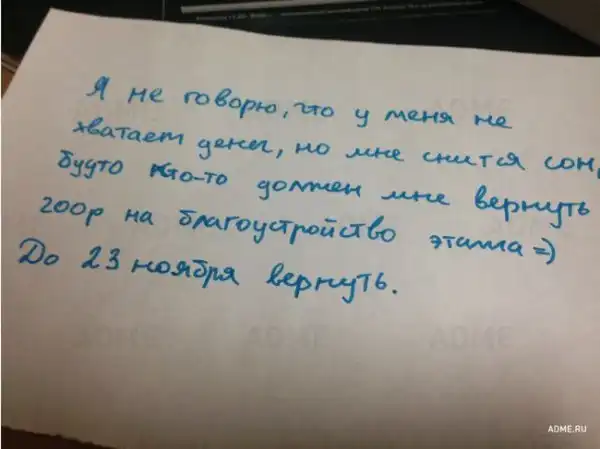 Я не говорю, что у меня не
хватает денег, но мне снится сон,
будто кто-то должен мне вернуть
200р на благоустройство этажа =)
До 23 ноября вернуть.
ADME.RU